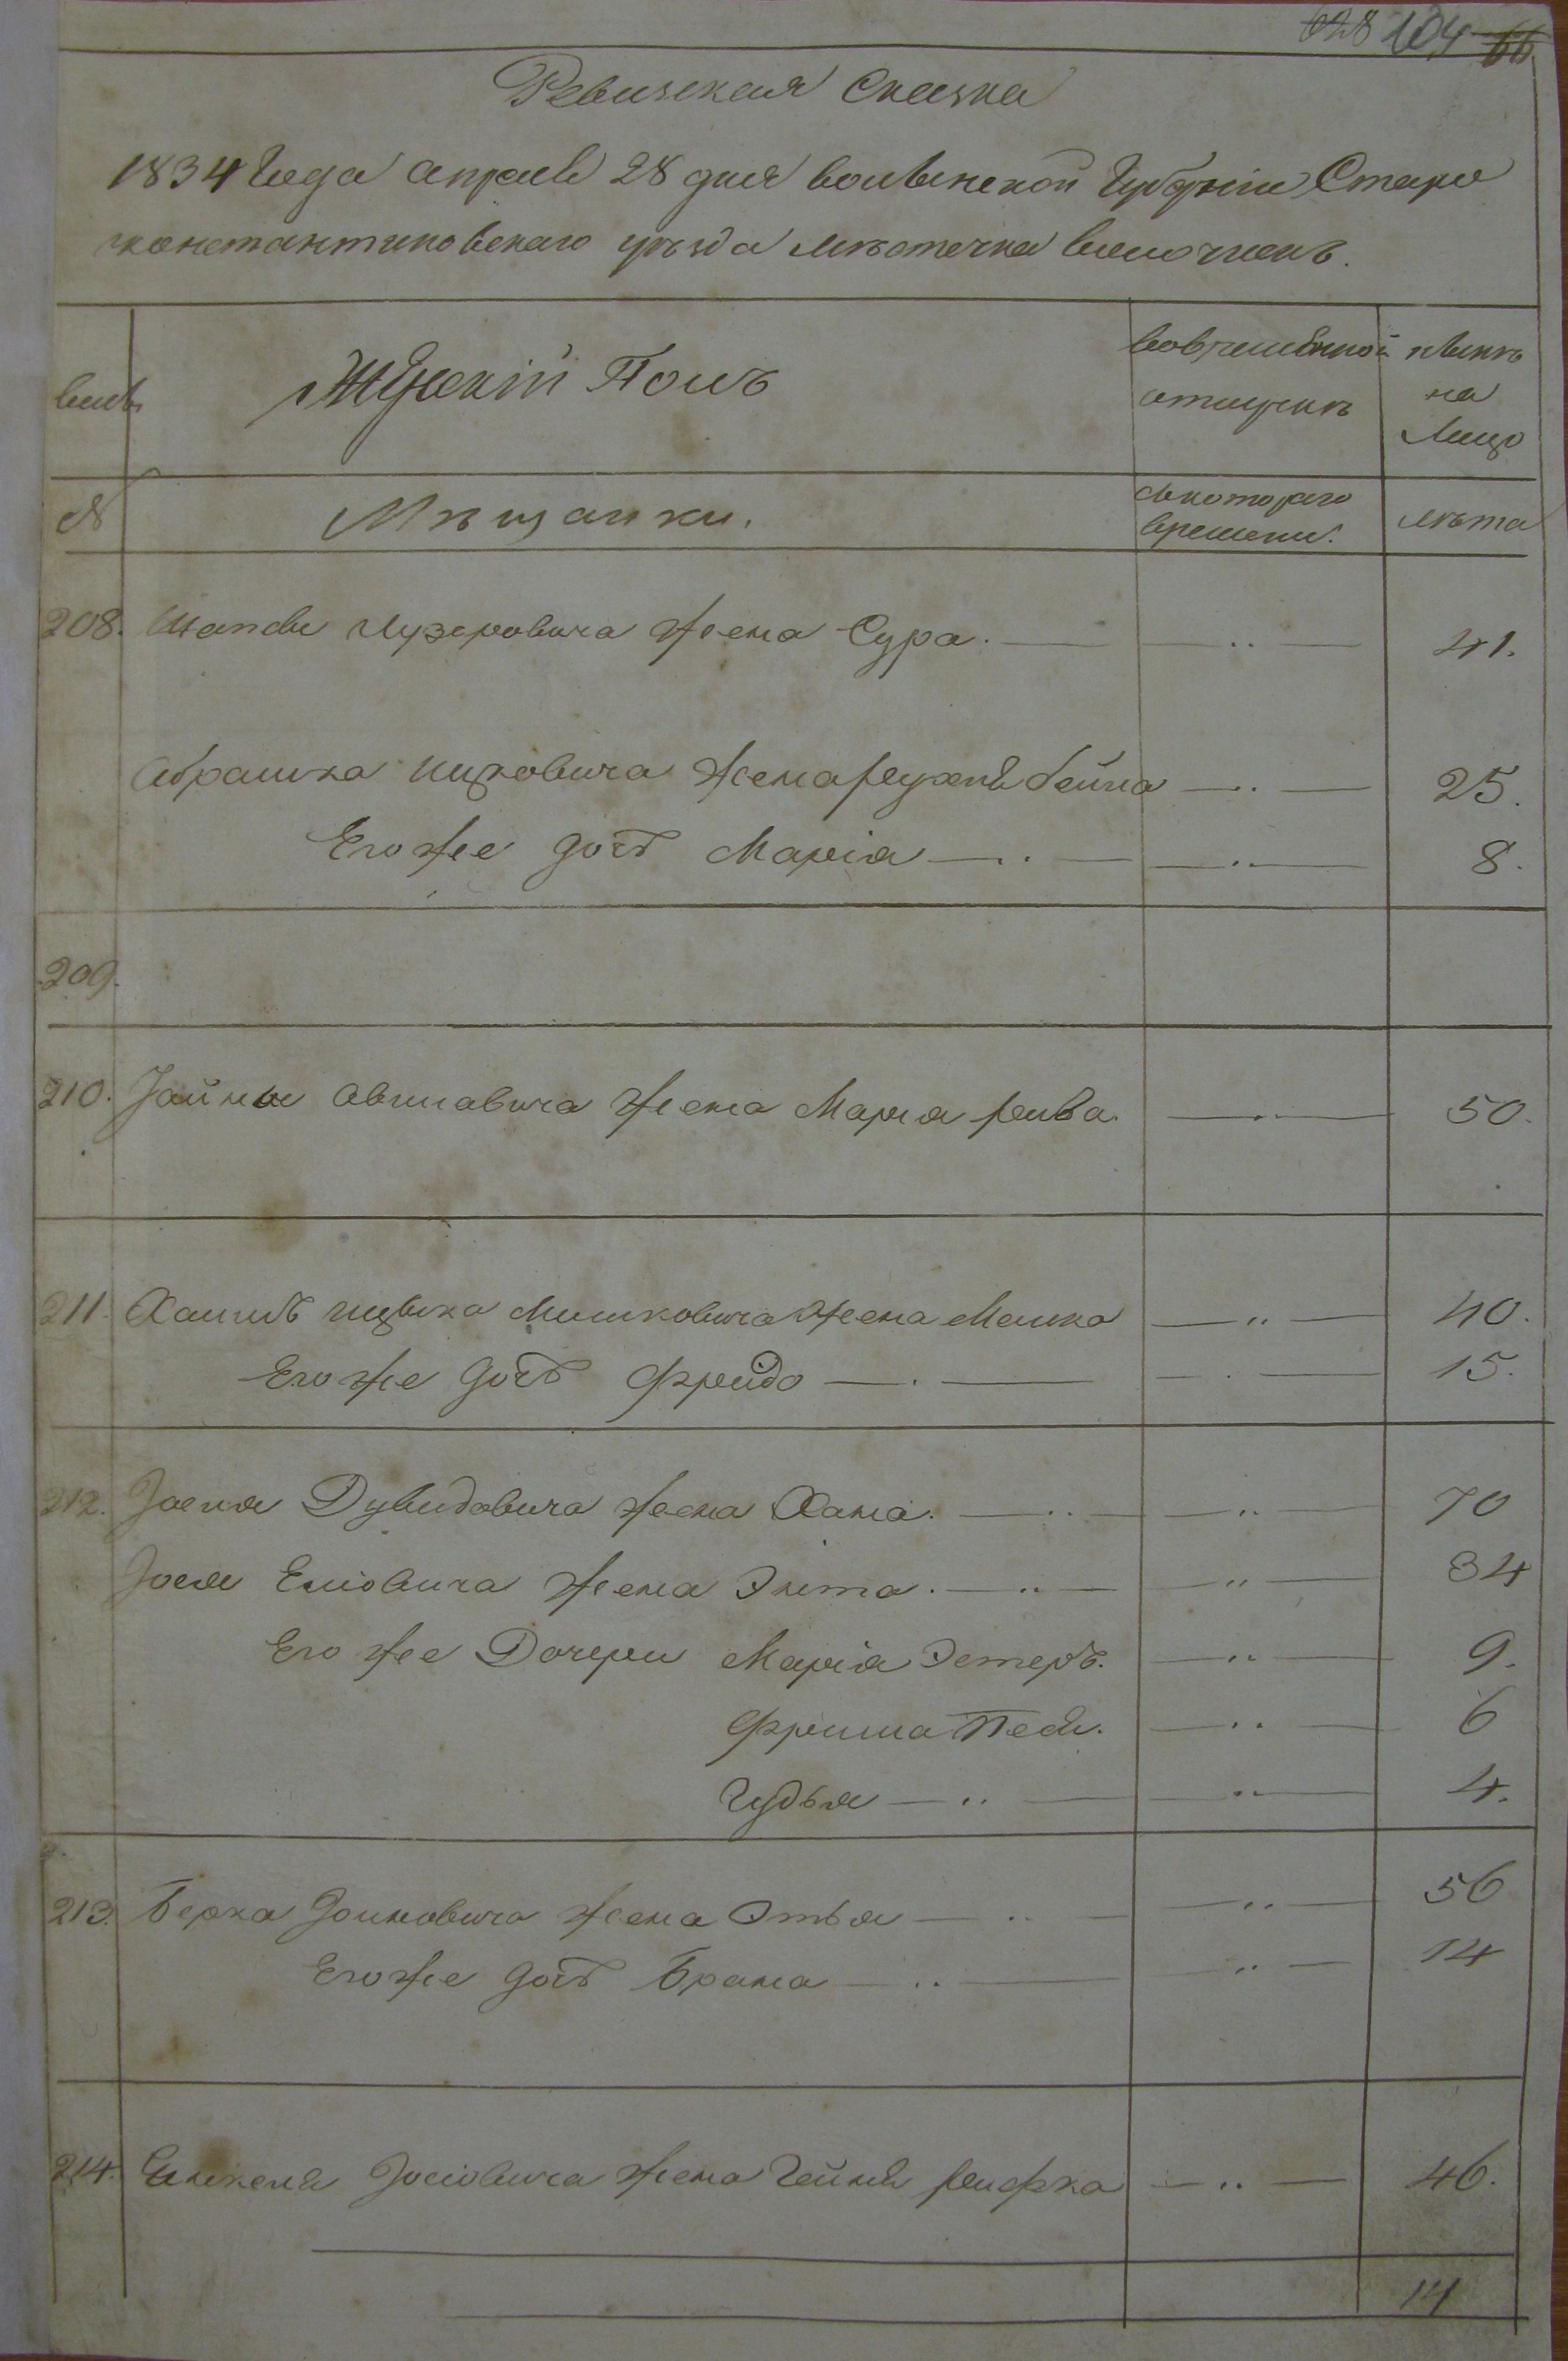 628 104 66
Ревизская Сказка
1834 Года апреля 28 дня волынской Губерніи Старо
константиновскаго уѣзда мѣстечка волочискъ.
Женскій Полъ
во временной отлучкѣ
нынѣ на Лицо
№
Мѣщанки.
съ котораго времени.
лѣта
208. Шапсы Лузеровича жена Сура. 41.
Абрамка ицковича жена рухля бейла 25.
Его же дочь Марія 8.
209.
210. Хаймы Авшіовича жена Марія рива. 50.
211. Хаимъ ицька Мошковича жена Малка 40.
Его же дочь Фрейда 15.
212. Іося Дувидовича жена Хана. 70
Іося Еліовича жена Элта. 34
Его же Дочери Марія Эстеръ. 9.
Фрима Песя. 6
Гудья 4.
213. Берка Іойновича жена Этья 56
Его же дочь Брана 14
214. Іосіовича жена Чейня рифка 46.
14